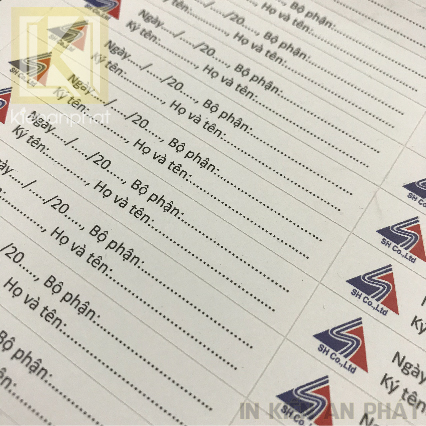 Ngày..../..../20...., Bộ phận:
Ký tên:..............., Họ và tên:
SH Co.,Ltd
Ngày..../..../20...., Bộ phận:
Ký tên:..............., Họ và tên:
SH Co.,Ltd
Ngày..../..../20...., Bộ phận:
Ký tên:..............., Họ và tên:
Ngày..../..../20...., Bộ phận:
Ký tên:..............., Họ và tên:
/20...., Bộ phận:
Họ và tên:
Bộ phận:
SH Co.,Ltd
SH Co.,Ltd
SH Co.,Ltd
Ngày
Ký tên:
SH Co.,Ltd
kienanphat
IN KIẾN AN PHÁT